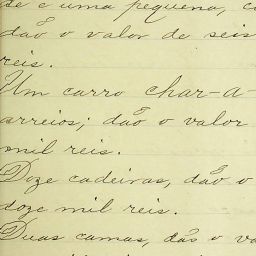 de e uma pequena, c
dão o valor de seis
reis.
Um carro char-a-
arreios; dão o valor
mil reis.
Doze cadeiras, dão o
doze mil reis.
Duas camas, dão o va